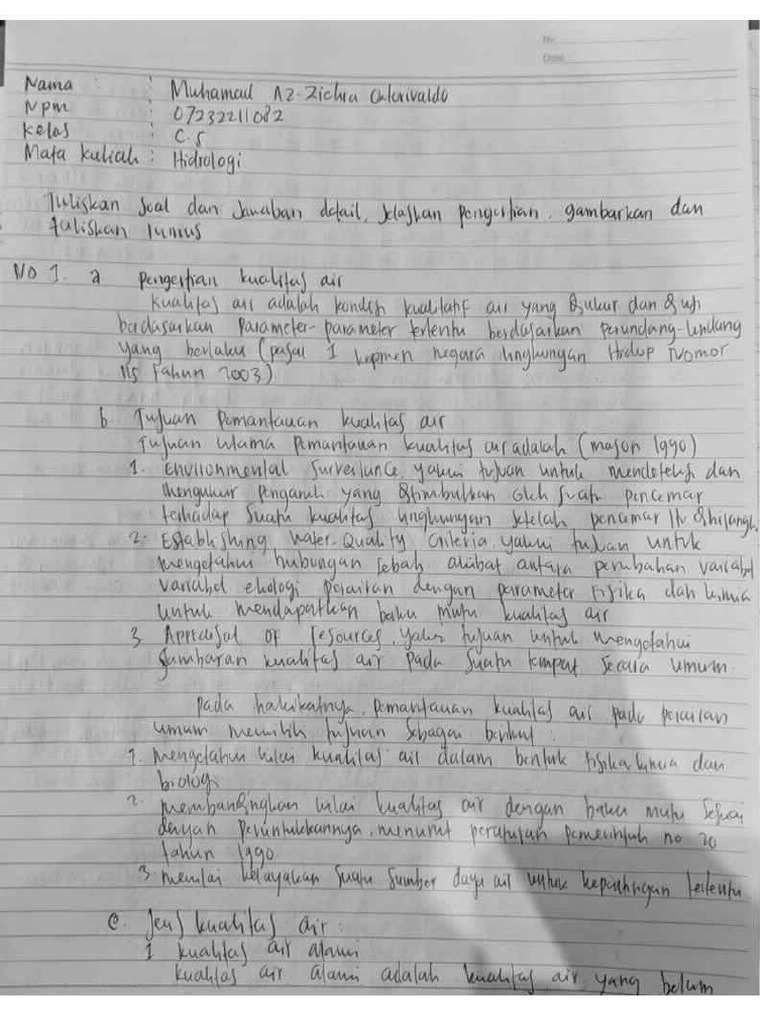 No.
Date
Nama : Muhamad Az-Zichra Chlorivaldo
NPM : 07232211082
Kelas : C.5
Mata kuliah : Hidrologi
Tuliskan Soal dan Jawaban detail, Jelaskan pengertian, gambarkan dan
tuliskan rumus
NO 1. a pengertian kualitas air
Kualitas air adalah kondisi kualitatif air yang diukur dan diuji
berdasarkan parameter-parameter tertentu berdasarkan perundang-undang
yang berlaku (pasal 1 kepmen negara lingkungan Hidup Nomor
115 Tahun 2003)
b Tujuan Pemantauan kualitas air
Tujuan utama Pemantauan kualitas air adalah (mason 1990)
1. Environmental Surveilance, yakni tujuan untuk mendeteksi dan
mengukur pengaruh yang ditimbulkan oleh suatu pencemar
terhadap suatu kualitas lingkungan setelah pencemar itu dihilangk
2. Establishing water-Quality Criteria, yakni tujuan untuk
mengetahui hubungan sebab akibat antara perubahan variabel
variabel ekologi perairan dengan parameter fisika dan kimia
untuk mendapatkan baku mutu kualitas air
3. Appraisal of resources, yakni tujuan untuk mengetahui
gambaran kualitas air pada suatu tempat secara umum.
pada hakikatnya, pemantauan kualitas air pada perairan
umum memiliki tujuan sebagai berikut :
1. mengetahui nilai kualitas air dalam bentuk fisika kimia dan
biologi
2. membandingkan nilai kualitas air dengan baku mutu sesuai
dengan peruntukkannya, menurut peraturan pemerintah no 20
tahun 1990
3. menilai kelayakan suatu sumber daya air untuk kepentingan tertentu
c. Jenis kualitas air :
1 kualitas air alami
kualitas air alami adalah kualitas air yang belum